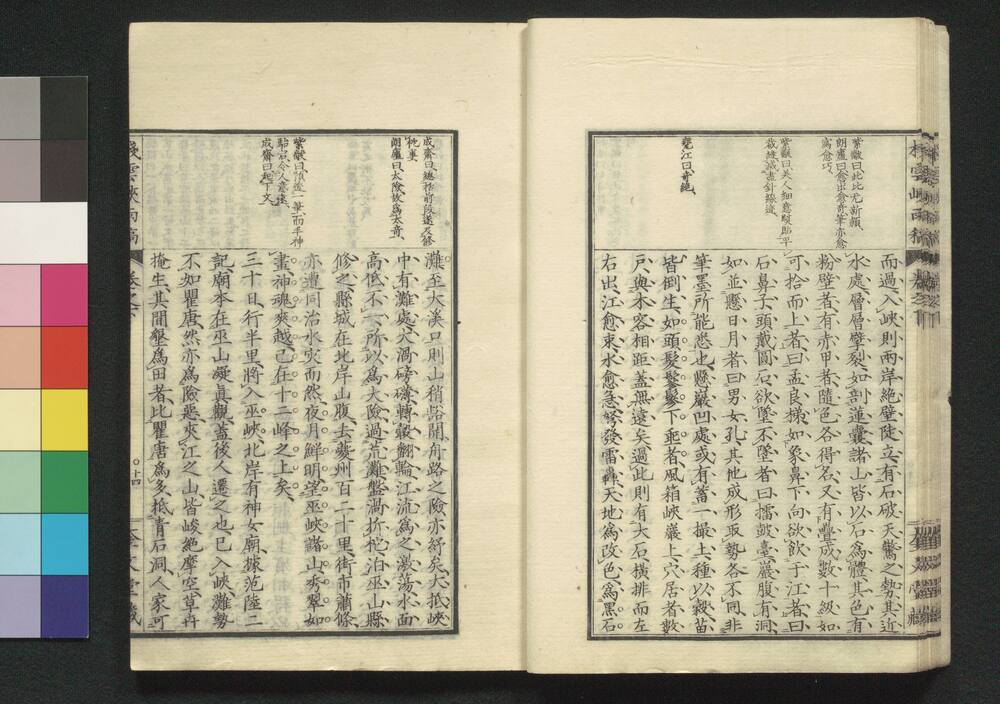 棧雲峽雨稿
紫獻曰比比尤新穎、
朗廬曰愈出愈奇筆亦愈
寫愈巧、
紫獻曰美人細意熨貼平
裁縫滅盡針線迹、
甕江曰奇絶、
而過、入峽則兩岸絶壁陡立、有石破天驚之勢、其近
水處層層擘裂、如剖蓮囊、諸山皆以石爲體、其色有
粉壁者、有赤甲者、隨色各得名、又有疊成數十級、如
可拾而上者、曰孟良梯、如象鼻下向欲飲于江者、曰
石鼻子、頭戴圓石、欲墜不墜者、曰擂皷臺、巖腹有洞、
如並懸日月者、曰男女孔、其他成形取勢、各不同、非
筆墨所能悉也、懸巖凹處、或有蓄一撮土、種以穀苗、
皆倒生、如頭髮鬖鬖下垂者、風箱峽巖上、穴居者數
戶、與木客相距、蓋無遠矣、過此則有大石橫排、而左
右出、江愈束、水愈急、弩發雷轟、天地爲改色、爲黑石
灘、至大溪口、則山稍豁開、舟路之險亦紓矣、大抵峽
中有灘處、大渦磅礴、轉轂翻輪、江流爲之激蕩、水面
高低不一、所以爲大險、過荒灘盤渦折柁、泊巫山縣
修之、縣城在北岸山腹、去夔州百二十里、街市蕭條、
亦遭同治水灾而然、夜月鮮明、望巫峽諸山、秀翠如
畫、神魂夾越、已在十二峰之上矣、
三十日、行半里、將入巫峽、北岸有神女廟、據范陸二
記、廟本在巫山凝眞觀、蓋後人遷之也、已入峽、灘勢
不如瞿唐、然亦爲險惡、夾江之山、皆峻絶摩空、草卉
掩生、其開墾爲田者、比瞿唐爲多、抵青石洞、人家可
成齋曰總抬前段遂及修
柁事
朗廬曰大險故爲太奇、
紫獻曰帶這一筆、而手神
駘宕令人意遠、
成齋曰起下文、
棧雲峽雨稿
卷之下
十四